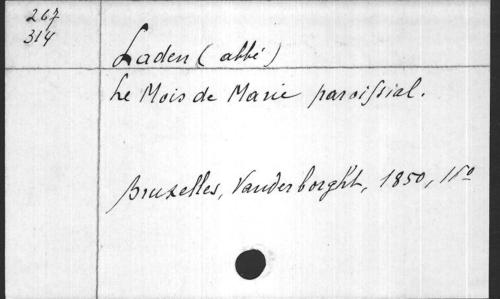 267
314
Laden (abbé)
Le Mois de Marie paroissial.
Bruxelles, Vanderborght, 1850,